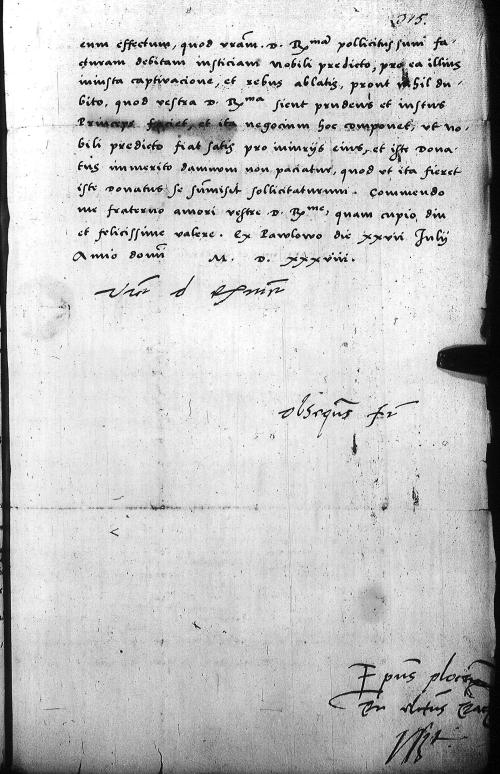 315.
eum effectum, quod vram. D. Rma pollicitus sum fa-
cturam debitam iusticiam nobili predicto, pro ea illius
iniusta captivacione, et rebus ablatis, prout nihil du-
bito, quod vestra D. Rma sicut prudens et iustus
Princeps faciet, et ita negocium hoc componet, ut no-
bili predicto fiat satis pro iniurijs eius, et iste Dona-
tus immerito damnum non paciatur, quod ut ita fieret
iste Donatus se sumisit sollicitaturum. Commendo
me fraterno amori vestre D. Rme, quam cupio diu
et felicissime valere. Ex Pawlowo die xxvii Julij
Anno domi M. D. xxxviii.
Vre d
obsequs fr
Epus plocen
electus